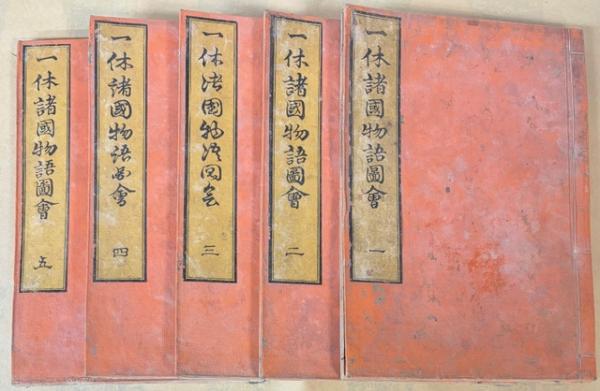 一休諸國物語圖會 一
一休諸國物語圖會 二
一休諸國物語圖會 三
一休諸國物語圖會 四
一休諸國物語圖會 五